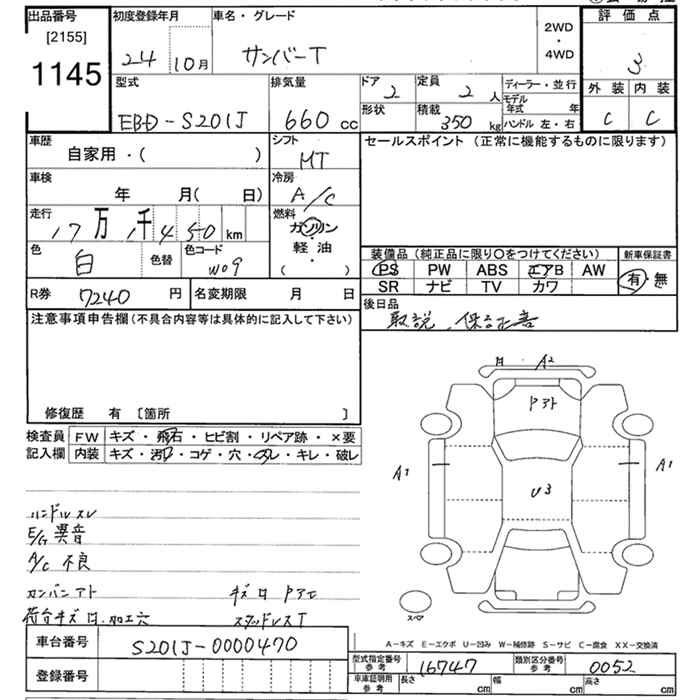 出品番号 初度登録年月 車名・グレード 評価点
[2155] 2WD
1145 24 10月 サンバーT ・ 3
4WD
外装 内装
型式 排気量 ドア 2 定員 2人 ディーラー・並行
モデル年式 年
EBD-S201J 660cc 形状 積載 350kg ハンドル 左・右 C C
車歴 シフト セールスポイント (正常に機能するものに限ります)
自家用・( ) MT
車検 冷房
年 月( 日) A/C
走行 燃料
17万 1千450km ガソリン
・
軽油
( ・ )
色 白 色替 色コード W09
装備品 (純正品に限り○をつけてください) 新車保証書
PS PW ABS エアB AW 有・無
SR ナビ TV カワ
R券 7240円 名変期限 月 日
後日品
取説、保証書
注意事項申告欄 (不具合内容等は具体的に記入して下さい)
修復歴 有 [箇所 ]
検査員 FW キズ・飛石・ヒビ割・リペア跡・×要
記入欄 内装 キズ・汚れ・コゲ・穴・スレ・キレ・破レ
A2
A1 U3 A1
ハンドルスレ
E/G異音
A/C 不良
カンバンアト
荷台キズ 加工穴 スタッドレスT
スペア
車台番号 S201J-0000470
登録番号
A-キズ E-エクボ U-凹み W-補修跡 S-サビ C-腐食 XX-交換済
型式指定番号 参考 16747 類別区分番号 参考 0052
車庫証明用 参考 長さ cm 幅 cm 高さ cm